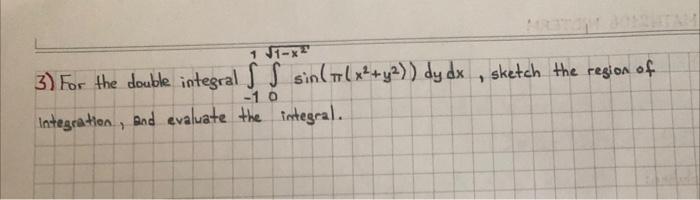 3) For the double integral ∫_{-1}^{1} ∫_{0}^{√1-x²} sin(π(x²+y²)) dy dx , sketch the region of
Integration, and evaluate the integral.